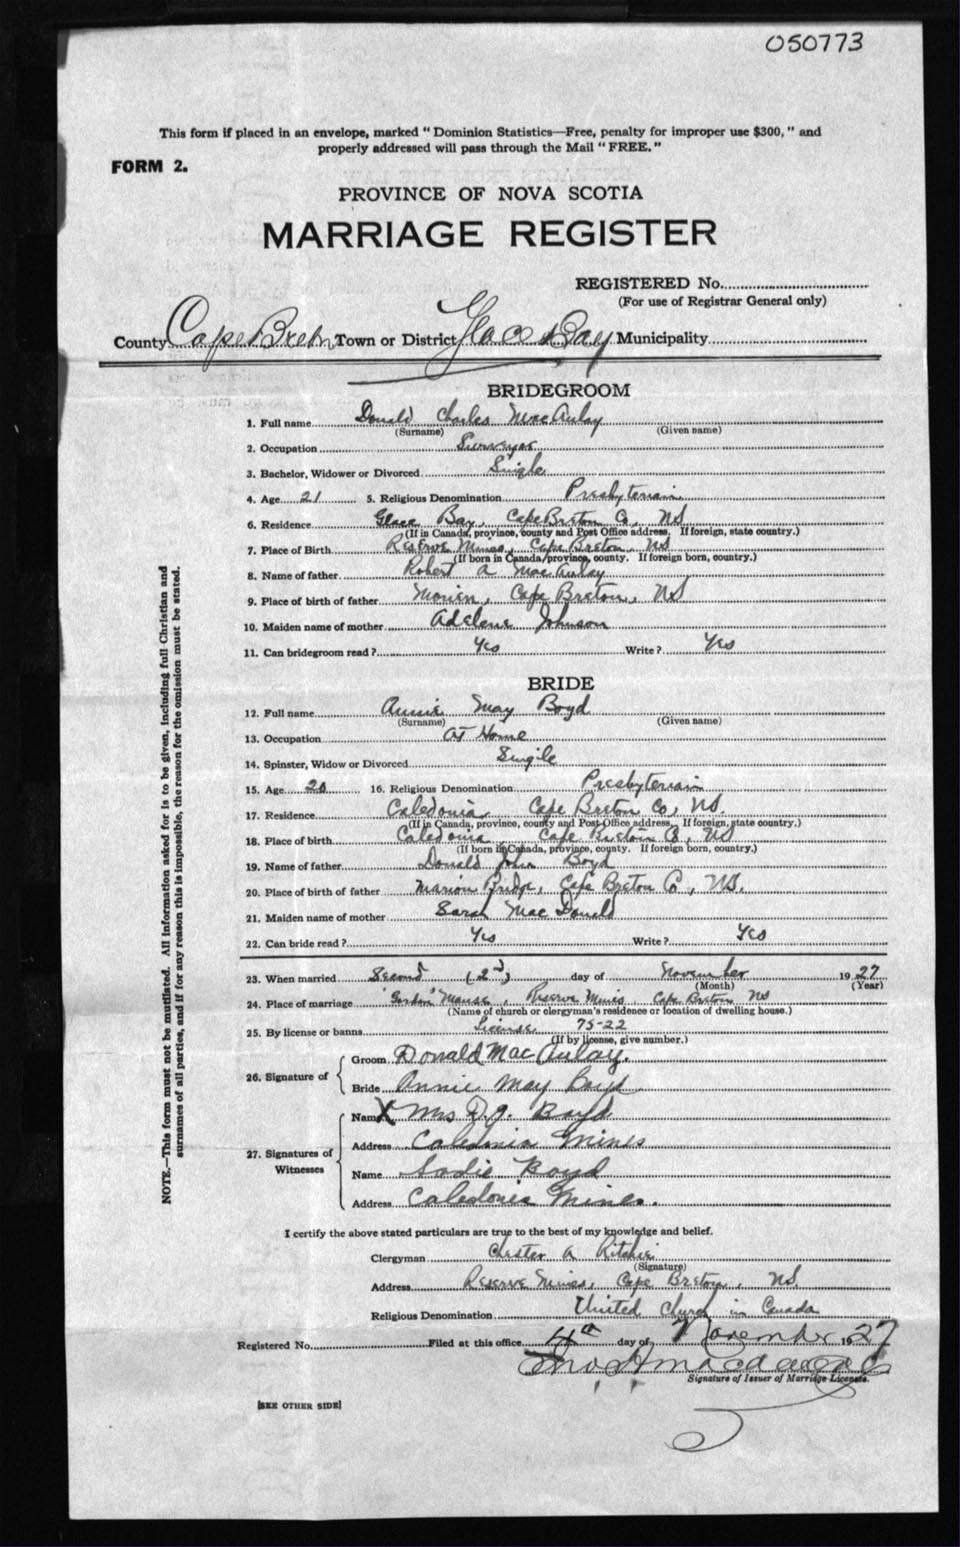 050773
This form if placed in an envelope, marked "Dominion Statistics—Free, penalty for improper use $300," and
properly addressed will pass through the Mail "FREE."
FORM 2.
PROVINCE OF NOVA SCOTIA
MARRIAGE REGISTER
REGISTERED No.
(For use of Registrar General only)
County Cape Breton Town or District Glace Bay Municipality
BRIDEGROOM
1. Full name Donald Charles MacAulay
(Surname) (Given name)
2. Occupation Surveyor
3. Bachelor, Widower or Divorced Single
4. Age 21 5. Religious Denomination Presbyterian
6. Residence Glace Bay, Cape Breton Co, NS
(If in Canada, province, county and Post Office address. If foreign, state country.)
7. Place of Birth Reserve Mines, Cape Breton, NS
(If born in Canada, province, county. If foreign born, country.)
8. Name of father Robert A MacAulay
9. Place of birth of father Morien, Cape Breton, NS
10. Maiden name of mother Adelene Johnson
11. Can bridegroom read? Yes Write? Yes
BRIDE
12. Full name Annie May Boyd
(Surname) (Given name)
13. Occupation At Home
14. Spinster, Widow or Divorced Single
15. Age 20 16. Religious Denomination Presbyterian
17. Residence Caledonia, Cape Breton Co, NS.
(If in Canada, province, county and Post Office address. If foreign, state country.)
18. Place of birth Caledonia Cape Breton Co, NS
(If born in Canada, province, county. If foreign born, country.)
19. Name of father Donald John Boyd
20. Place of birth of father Marion Bridge, Cape Breton Co, NS.
21. Maiden name of mother Sarah MacDonald
22. Can bride read? Yes Write? Yes
23. When married Second (2nd) day of November 1927
(Month) (Year)
24. Place of marriage "Gordon" Manse, Reserve Mines Cape Breton NS
(Name of church or clergyman's residence or location of dwelling house.)
25. By license or banns License 75-22
(If by license, give number.)
26. Signature of Groom Donald MacAulay.
Bride Annie May Boyd
27. Signatures of Witnesses Name X Mrs D.J. Boyd
Address Caledonia Mines
Name Sadie Boyd
Address Caledonia Mines.
I certify the above stated particulars are true to the best of my knowledge and belief.
Clergyman Chester A Ritchie
(Signature)
Address Reserve Mines, Cape Breton, NS.
Religious Denomination United Church in Canada
Registered No. Filed at this office 4th day of November 1927
Signature of Issuer of Marriage Licenses.
[SEE OTHER SIDE]
NOTE.—This form must not be mutilated. All information asked for is to be given, including full Christian and
surnames of all parties, and if for any reason this is impossible, the reason for the omission must be stated.